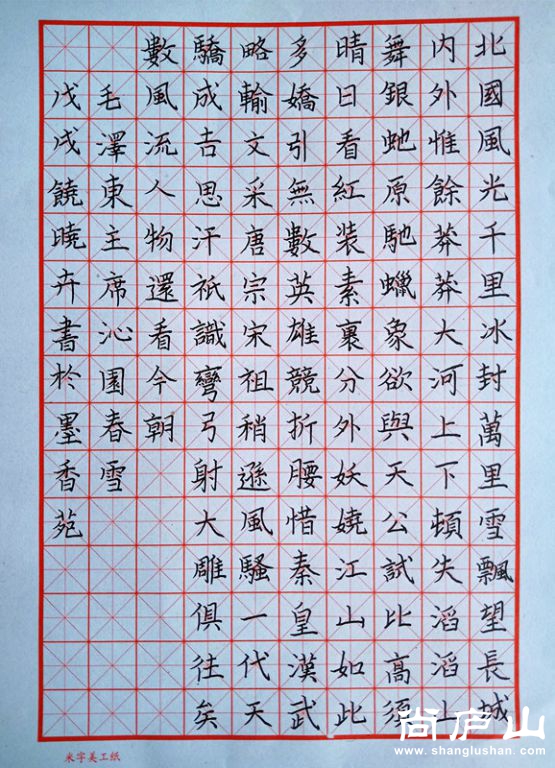 北國風光千里冰封萬里雪飄望長城
内外惟餘莽莽大河上下頓失滔滔山
舞銀虵原馳蠟象欲與天公試比高須
晴日看紅装素裹分外妖嬈江山如此
多嬌引無數英雄競折腰惜秦皇漢武
略輸文采唐宗宋祖稍遜風騷一代天
驕成吉思汗祇識彎弓射大雕俱往矣
數風流人物還看今朝
毛澤東主席沁園春雪
戊戌饒曉卉書於墨香苑
米字美工纸
尚庐山
www.shanglushan.com